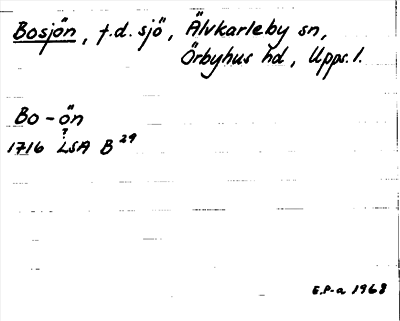 Bosjön, f.d. sjö, Älvkarleby sn,
Örbyhus hd, Upps.l.
Bo-ön
?
1716 LSA B 29
E.P-a 1968